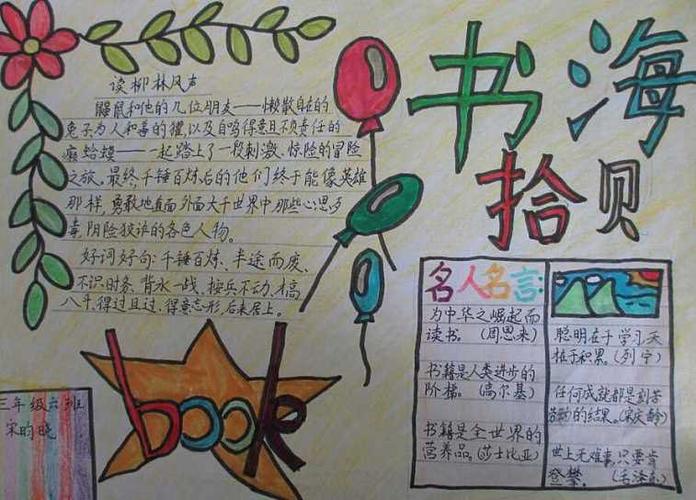 书海
拾贝
读柳林风声
鼹鼠和他的几位朋友——懒散自在的
兔子为人和善的獾,以及自鸣得意且不负责任的
癞蛤蟆——一起踏上了一段刺激、惊险的冒险
之旅。最终,千锤百炼后的他们终于能像英雄
那样,勇敢地直面外面大千世界中那些心思歹
毒,阴险狡诈的各色人物。
好词好句:千锤百炼、半途而废、
不识时务、背水一战、按兵不动、才高
八斗、得过且过、得意忘形、后来居上。
book
三年级六班
宋昀晓
名人名言:
为中华之崛起而
读书。(周思来)
书籍是人类进步的
阶梯。(高尔基)
书籍是全世界的
营养品。(莎士比亚)
聪明在于学习,天
才在于积累。(列宁)
任何成就都是刻苦
劳动的结果。(宋庆龄)
世上无难事,只要肯
登攀。(毛泽东)